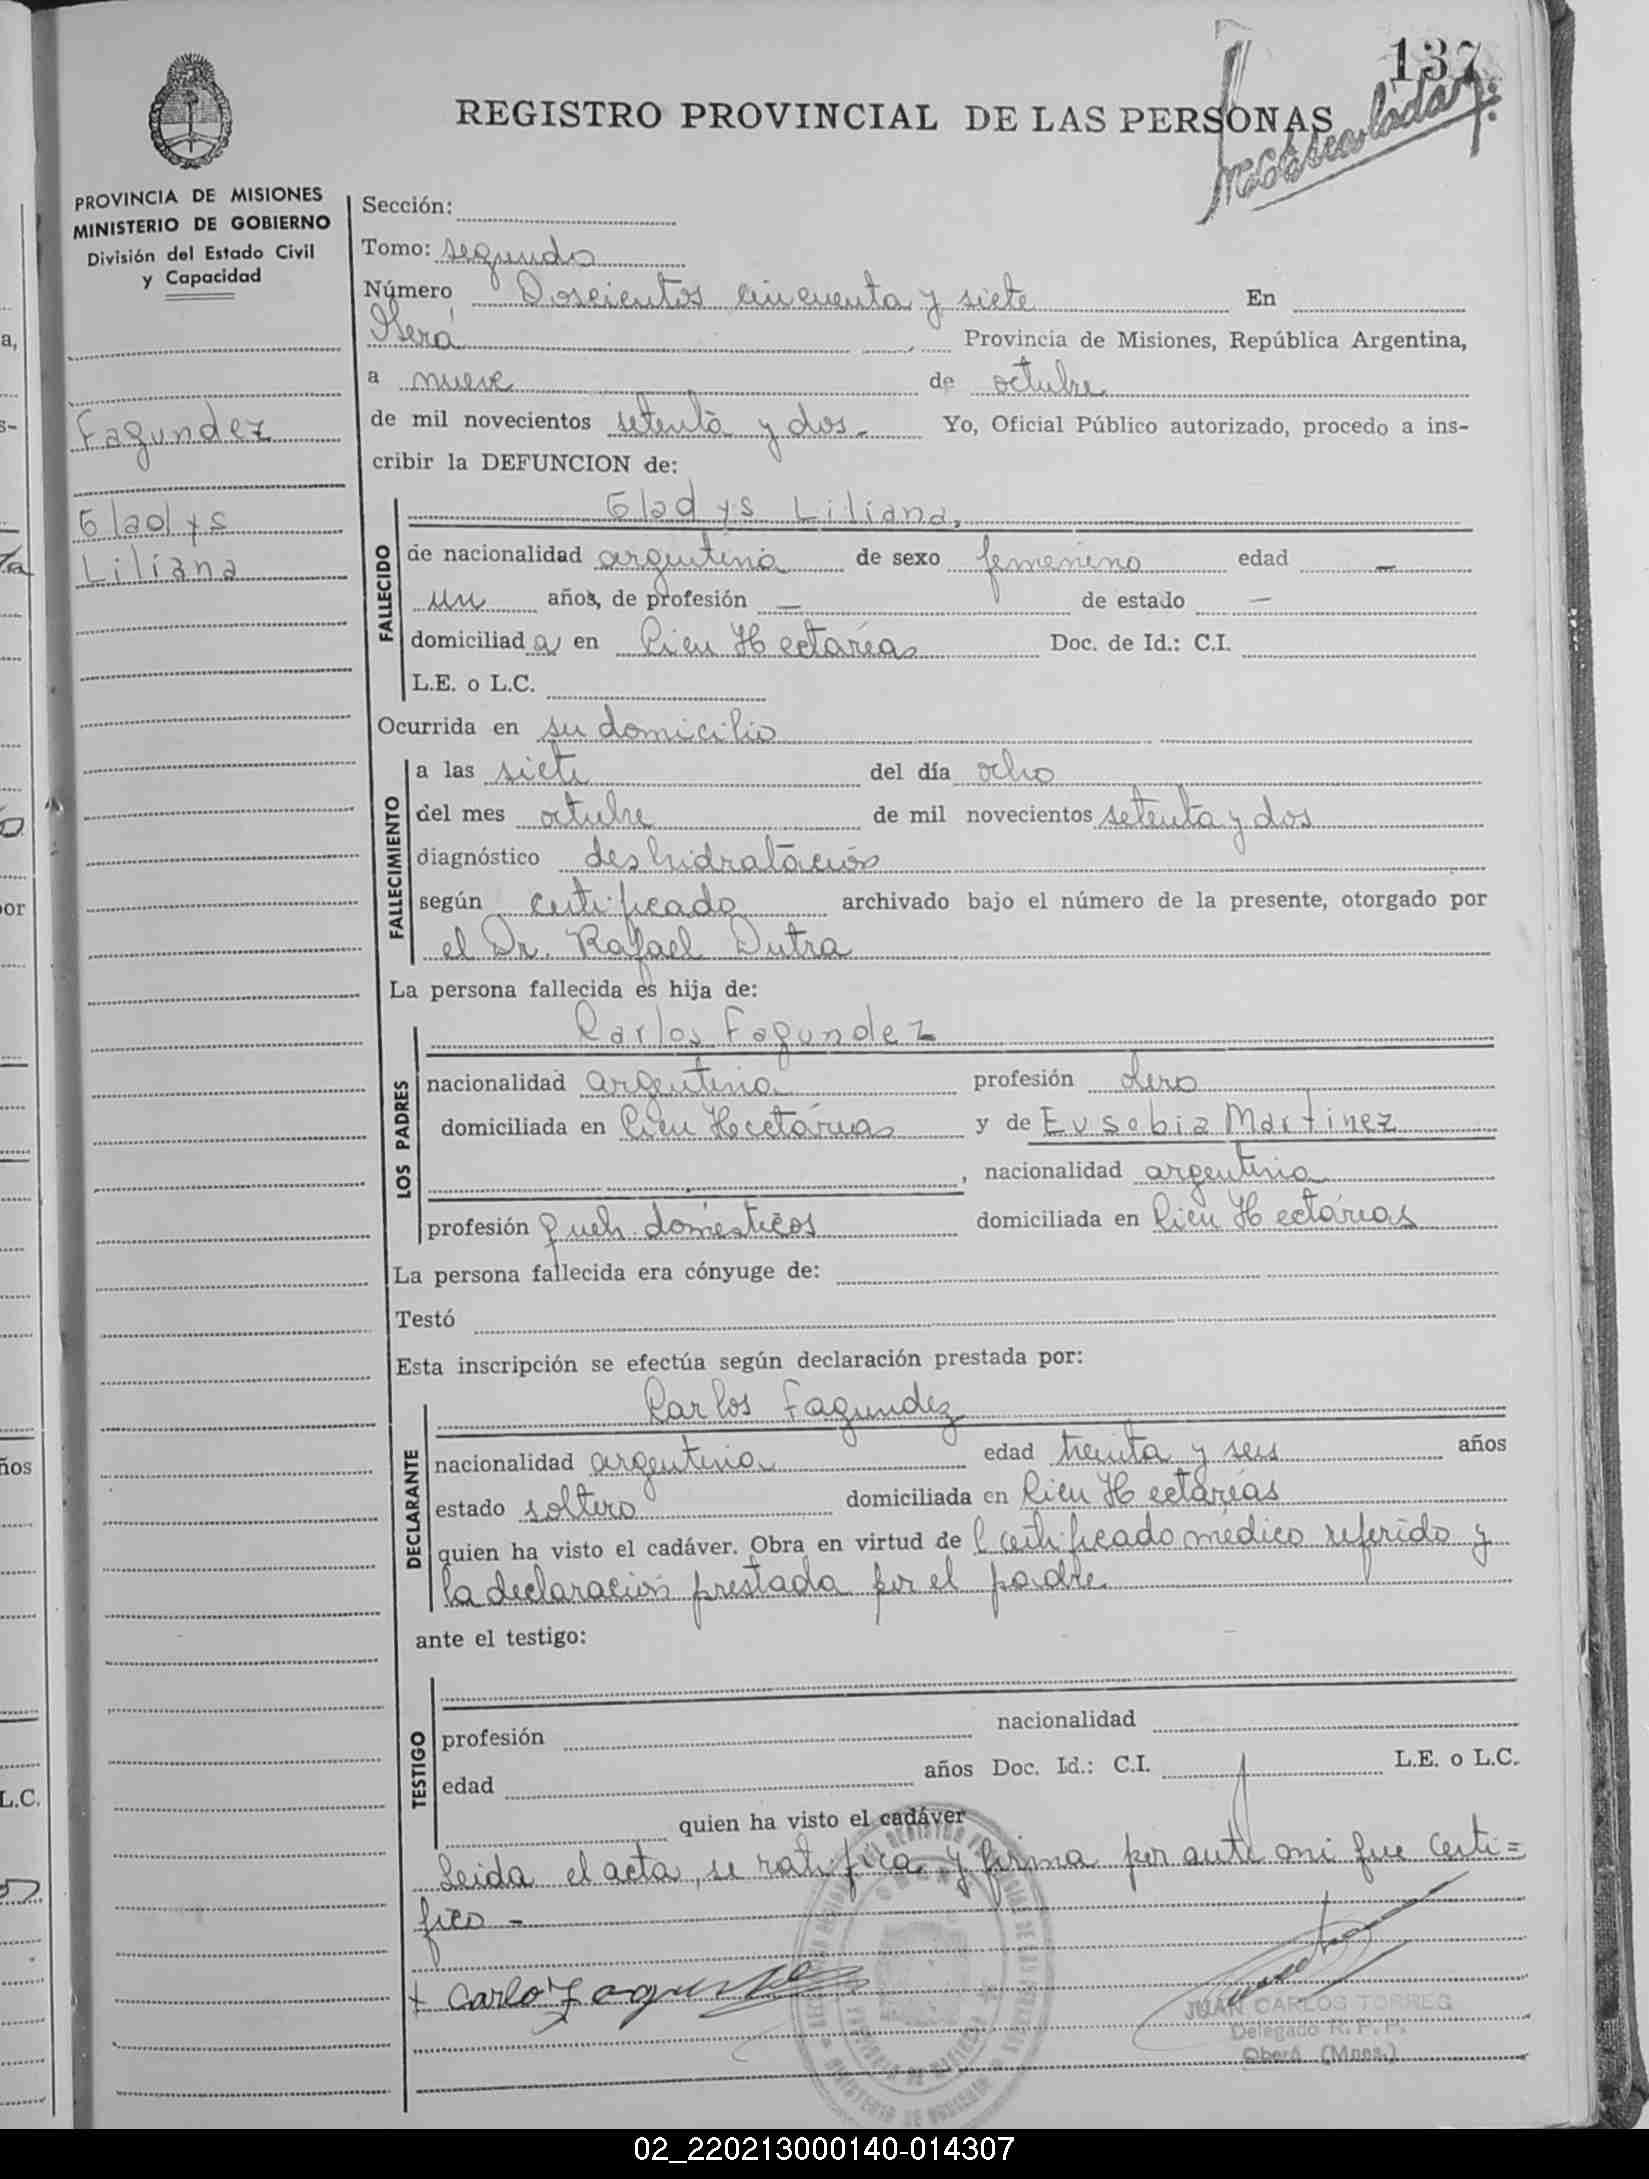 137
REGISTRO PROVINCIAL DE LAS PERSONAS
PROVINCIA DE MISIONES
MINISTERIO DE GOBIERNO
División del Estado Civil
y Capacidad
Fagundez
Gladys
Liliana
Sección:
Tomo: segundo
Número Doscientos cincuenta y siete En
Oberá Provincia de Misiones, República Argentina,
a nueve de octubre
de mil novecientos setenta y dos - Yo, Oficial Público autorizado, procedo a ins-
cribir la DEFUNCION de:
Gladys Liliana,
FALLECIDO
de nacionalidad argentina de sexo femenino edad —
un años, de profesión — de estado —
domiciliad a en Cien Hectáreas Doc. de Id.: C.I.
L.E. o L.C.
Ocurrida en su domicilio
FALLECIMIENTO
a las siete del día ocho
del mes octubre de mil novecientos setenta y dos
diagnóstico deshidratación
según certificado archivado bajo el número de la presente, otorgado por
el Dr. Rafael Dutra
La persona fallecida es hija de:
LOS PADRES
Carlos Fagundez
nacionalidad argentina profesión
domiciliada en Cien Hectáreas y de Eusebia Martinez
, nacionalidad argentina
profesión queh. domésticos domiciliada en Cien Hectáreas
La persona fallecida era cónyuge de:
Testó
Esta inscripción se efectúa según declaración prestada por:
DECLARANTE
Carlos Fagundez
nacionalidad argentina edad treinta y seis años
estado soltero domiciliada en Cien Hectáreas
quien ha visto el cadáver. Obra en virtud de l certificado médico referido y
la declaración prestada por el padre
ante el testigo:
TESTIGO
profesión nacionalidad
edad años Doc. Id.: C.I. L.E. o L.C.
quien ha visto el cadáver
Leida el acta, se ratifica y firma por ante mi que certi=
fico -
+ Carlo Fagundez
JUAN CARLOS TORRES
Delegado R. P. P.
Oberá (Mnes.)
02_220213000140-014307